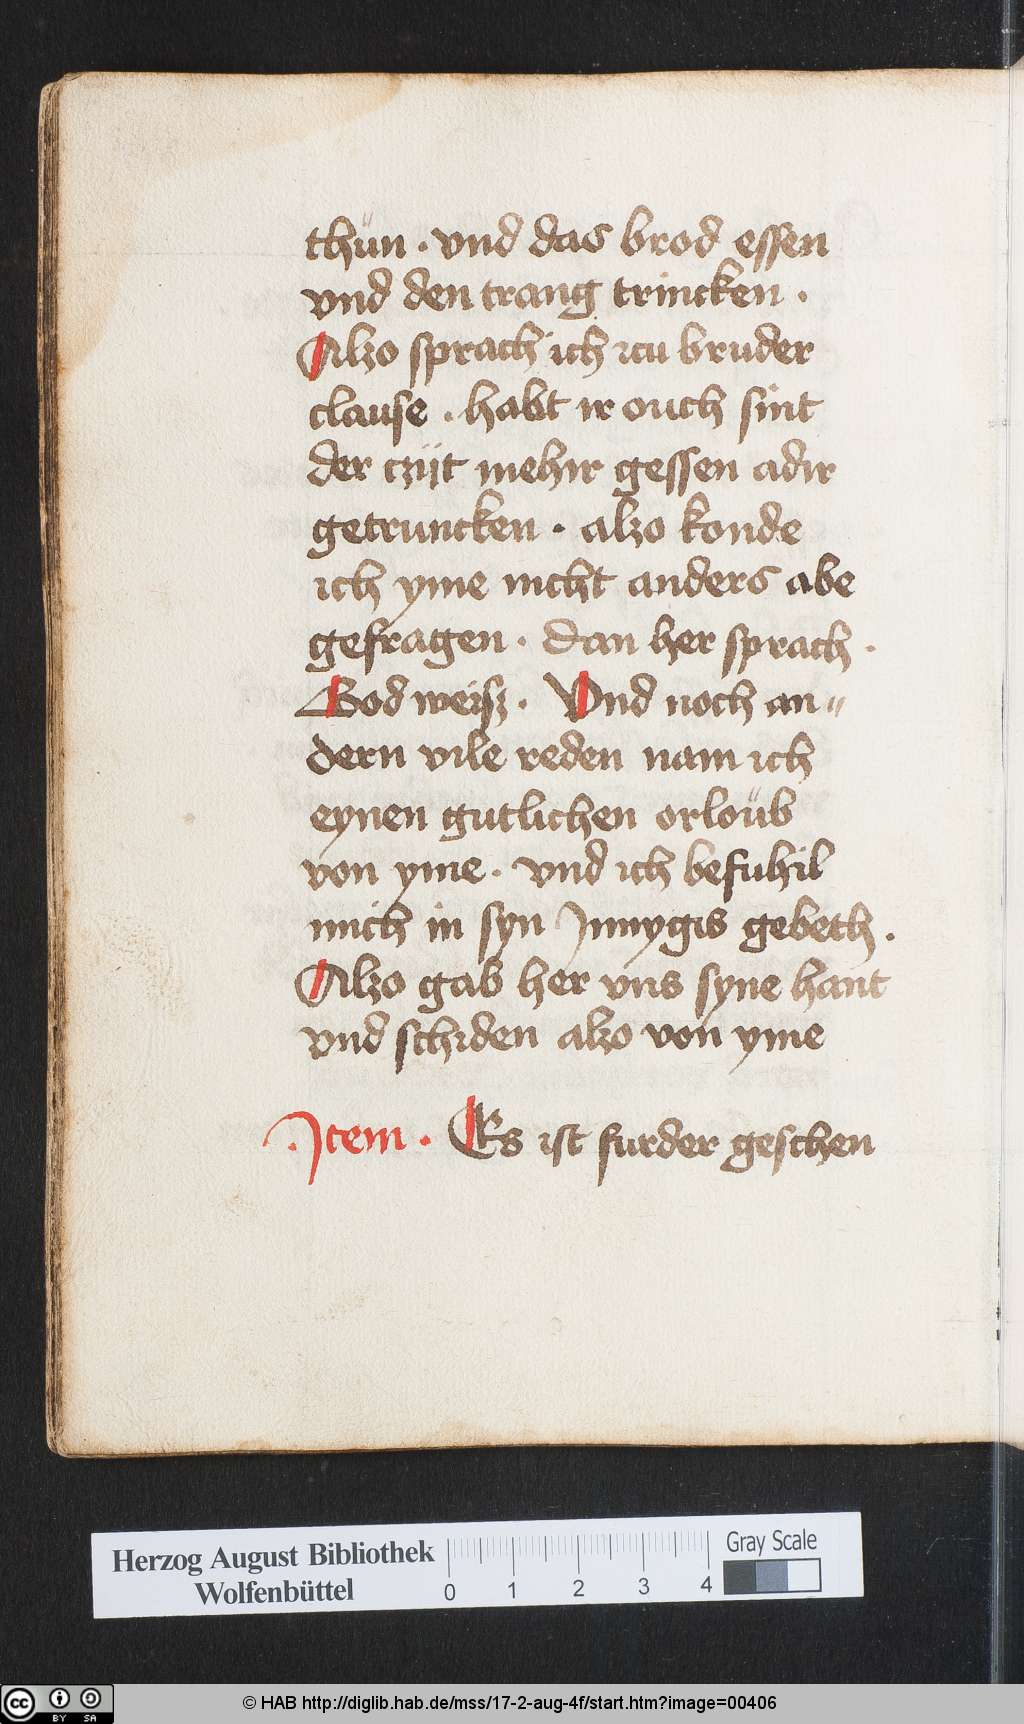 thün · vnd das brod essen
vnd den trang trincken ·
Alzo sprach ich icu bruder
clause · habt ir ouch sint
der czijt mehir gessen adir
getruncken · alzo konde
ich yme nicht anders abe
gefragen · dan her sprach ·
God weisz · Vnd noch an〃
dern vile reden nam ich
eynen gutlichen orloüb
von yme · vnd ich befuhil
mich in syn Jnnygis gebeth ·
Alzo gab her vns syne hant
vnd schiden alzo von yme
·Jtem · Es ist furder geschen
Herzog August Bibliothek
Wolfenbüttel
0 1 2 3 4
Gray Scale
cc BY SA
© HAB http://diglib.hab.de/mss/17-2-aug-4f/start.htm?image=00406